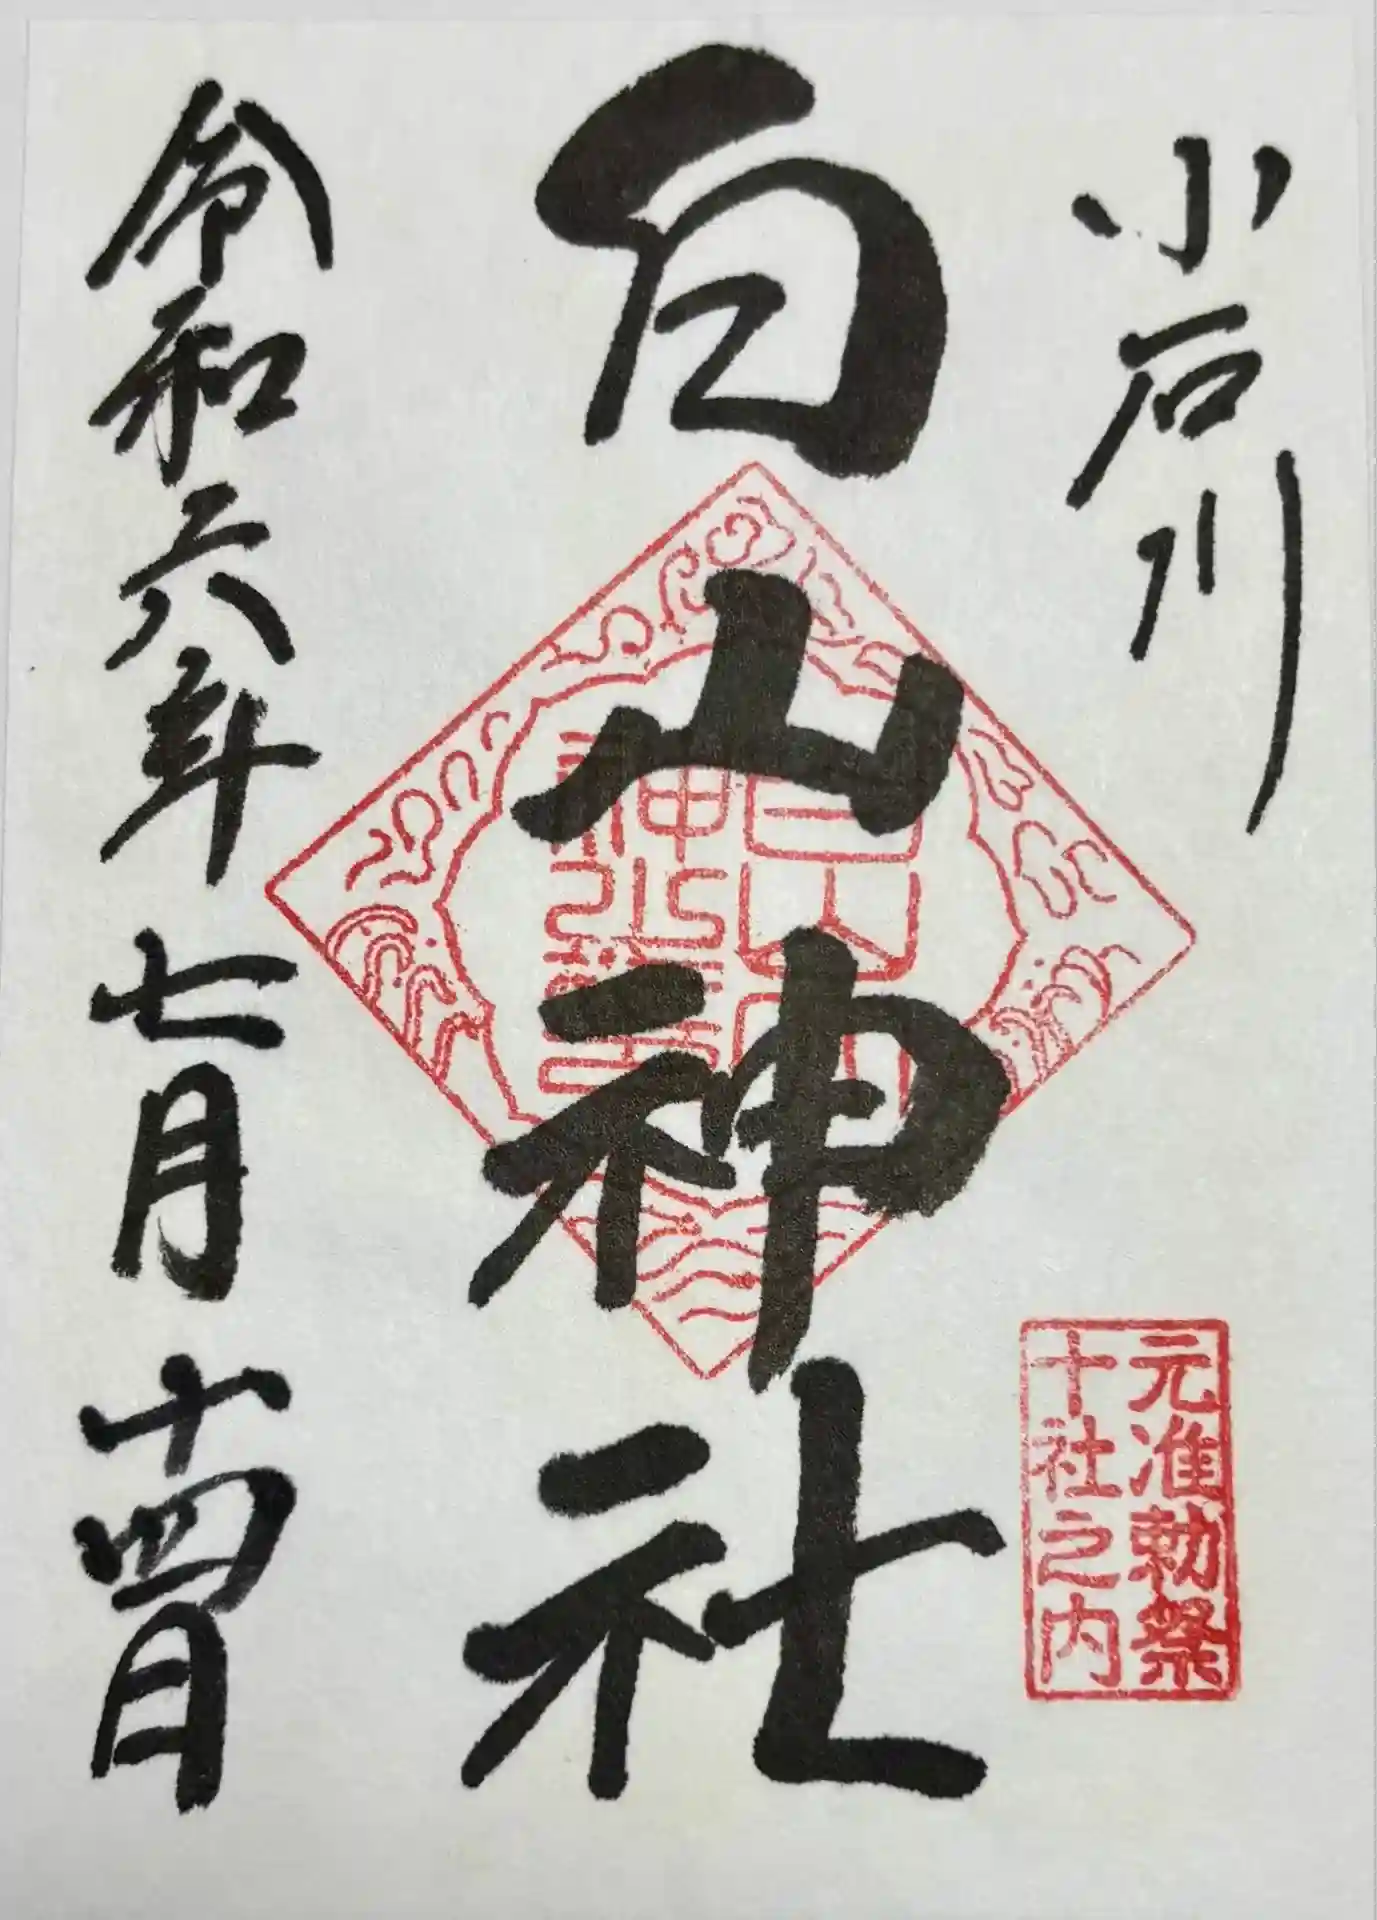 小石川
元准勅祭
十社之内
白山神社
令和六年七月十四日